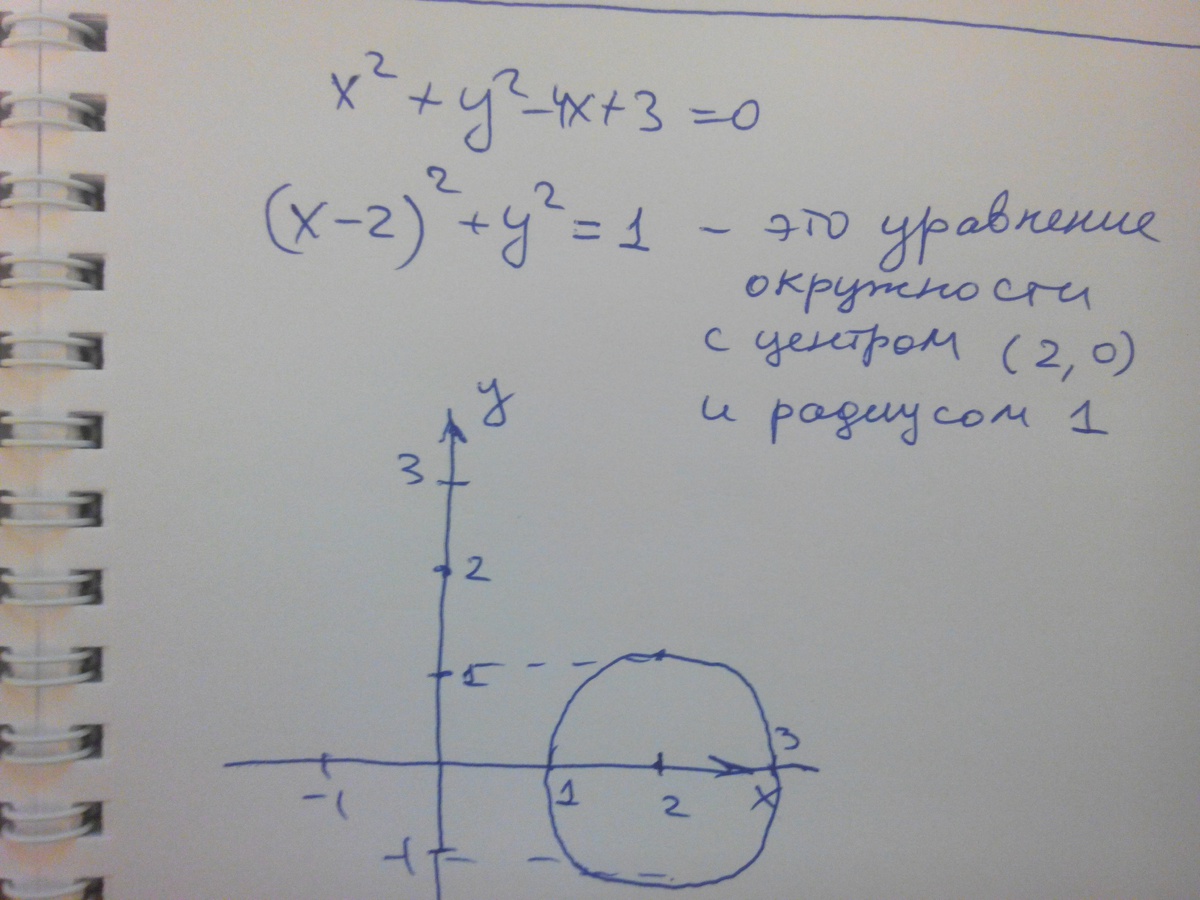 x² + y² - 4x + 3 = 0
(x - 2)² + y² = 1 - это уравнение
окружности
с центром (2, 0)
и радиусом 1
y
3
2
1
3
-1
1
2
x
-1